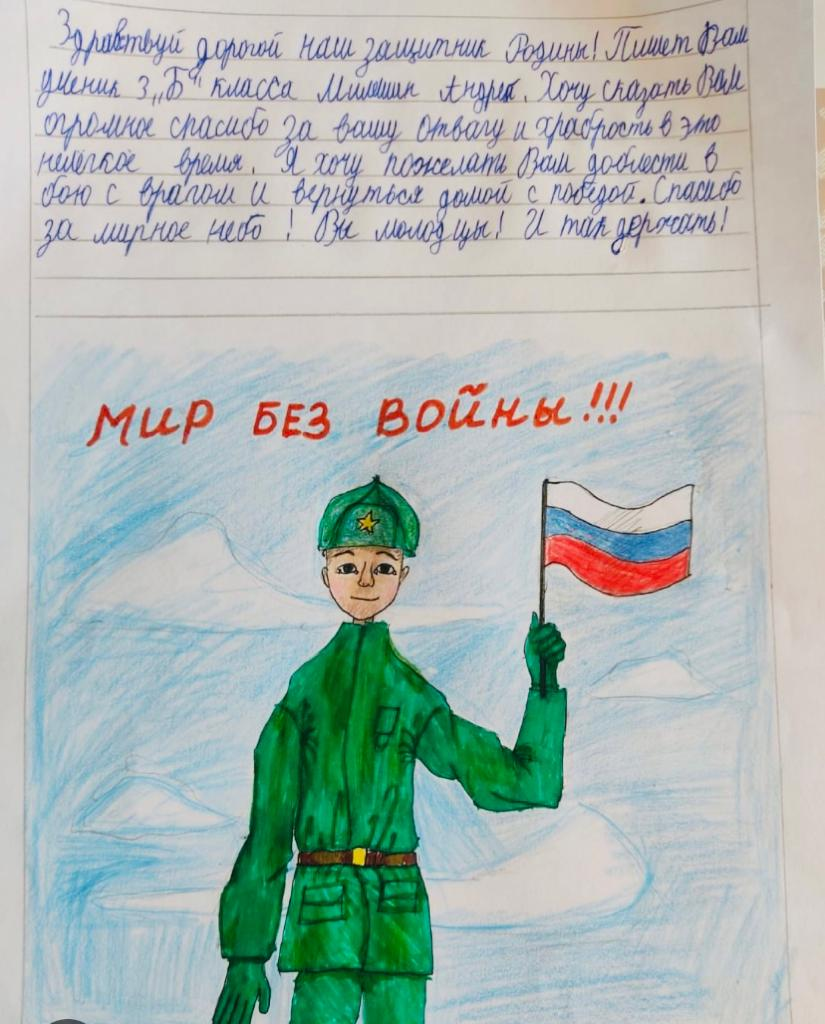 Здравствуй дорогой наш защитник Родины! Пишет Вам
ученик 3 „Б" класса Милешин Андрей. Хочу сказать Вам
огромное спасибо за вашу отвагу и храбрость в это
нелёгкое время. Я хочу пожелать Вам доблести в
бою с врагом и вернуться домой с победой. Спасибо
за мирное небо! Вы молодцы! И так держать!
МИР БЕЗ ВОЙНЫ!!!